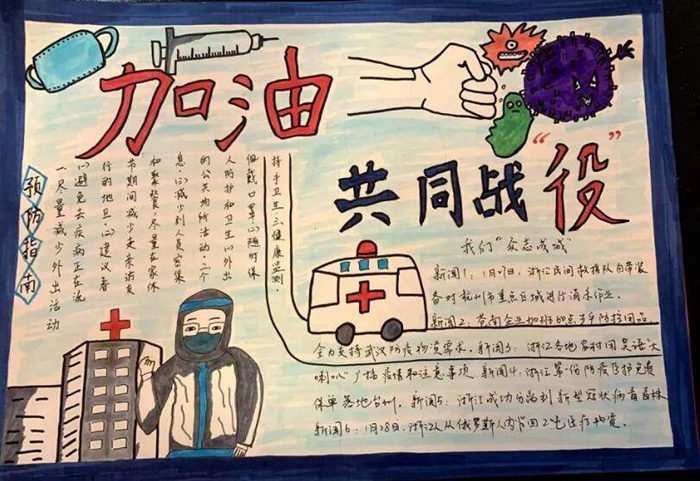 加油
共同战“役”
预防指南
一、尽量减少外出活动
(1)避免去疾病正在流
行的地区(2)建议春
节期间减少走亲访友
和聚餐,尽量在家休
息,(3)减少到人员密集
的公共场所活动,二、个
人防护和卫生(1)外出
佩戴口罩(2)随时保
持手卫生,三、健康监测,
我们“众志成城”
新闻1:1月21日,浙江民间救援队自带装
备对杭州市重点区域进行消杀作业。
新闻2:苍南企业加班加点生产防护用品
全力支持武汉防疫物资需求。新闻3:浙江各地农村用英语“大
喇叭”广播疫情和注意事项 新闻4:浙江第一份防疫医护免费
保单落地台州。新闻5:浙江成功分离到新型冠状病毒毒株
新闻6:1月28日,浙江人从俄罗斯人肉背回医疗物资。